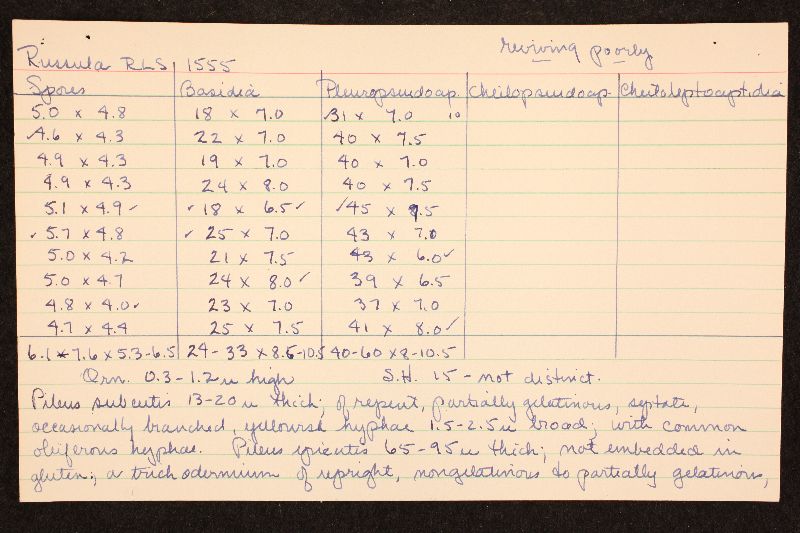 reviving poorly
Russula RLS 1555
Spores Basidia Pleuropseudocyp. Cheilopseudocyp. Cheiloleptocystidia
5.0 x 4.8 18 x 7.0 31 x 7.0 10
✓4.6 x 4.3 22 x 7.0 40 x 7.5
4.9 x 4.3 19 x 7.0 40 x 7.0
4.9 x 4.3 24 x 8.0 40 x 7.5
5.1 x 4.9✓ ✓18 x 6.5✓ ✓45 x 7.5
✓5.7 x 4.8 ✓25 x 7.0 43 x 7.0
5.0 x 4.2 21 x 7.5 43 x 6.0✓
5.0 x 4.7 24 x 8.0✓ 39 x 6.5
4.8 x 4.0✓ 23 x 7.0 37 x 7.0
4.7 x 4.4 25 x 7.5 41 x 8.0✓
6.1-7.6 x 5.3-6.5 24-33 x 8.6-10.5 40-60 x 8-10.5
Orn. 0.3-1.2 u high S.H. 15 - not distinct.
Pileus subcutis 13-20 u thick; of repent, partially gelatinous, septate,
occasionally branched, yellowish hyphae 1.5-2.5 u broad; with common
oliferous hyphae. Pileus epicutis 65-95 u thick; not embedded in
gluten; a trichodermium of upright, nongelatinous to partially gelatinous,